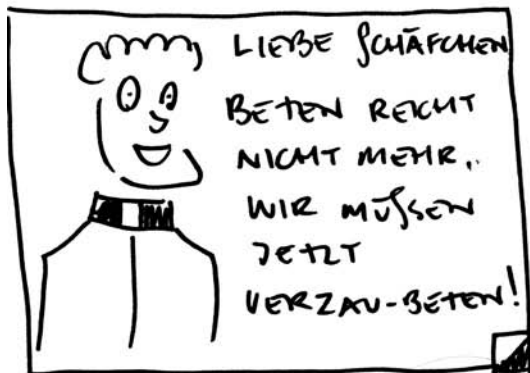 LIEBE SCHÄFCHEN
BETEN REICHT
NICHT MEHR,
WIR MÜSSEN
JETZT
VERZAU-BETEN!